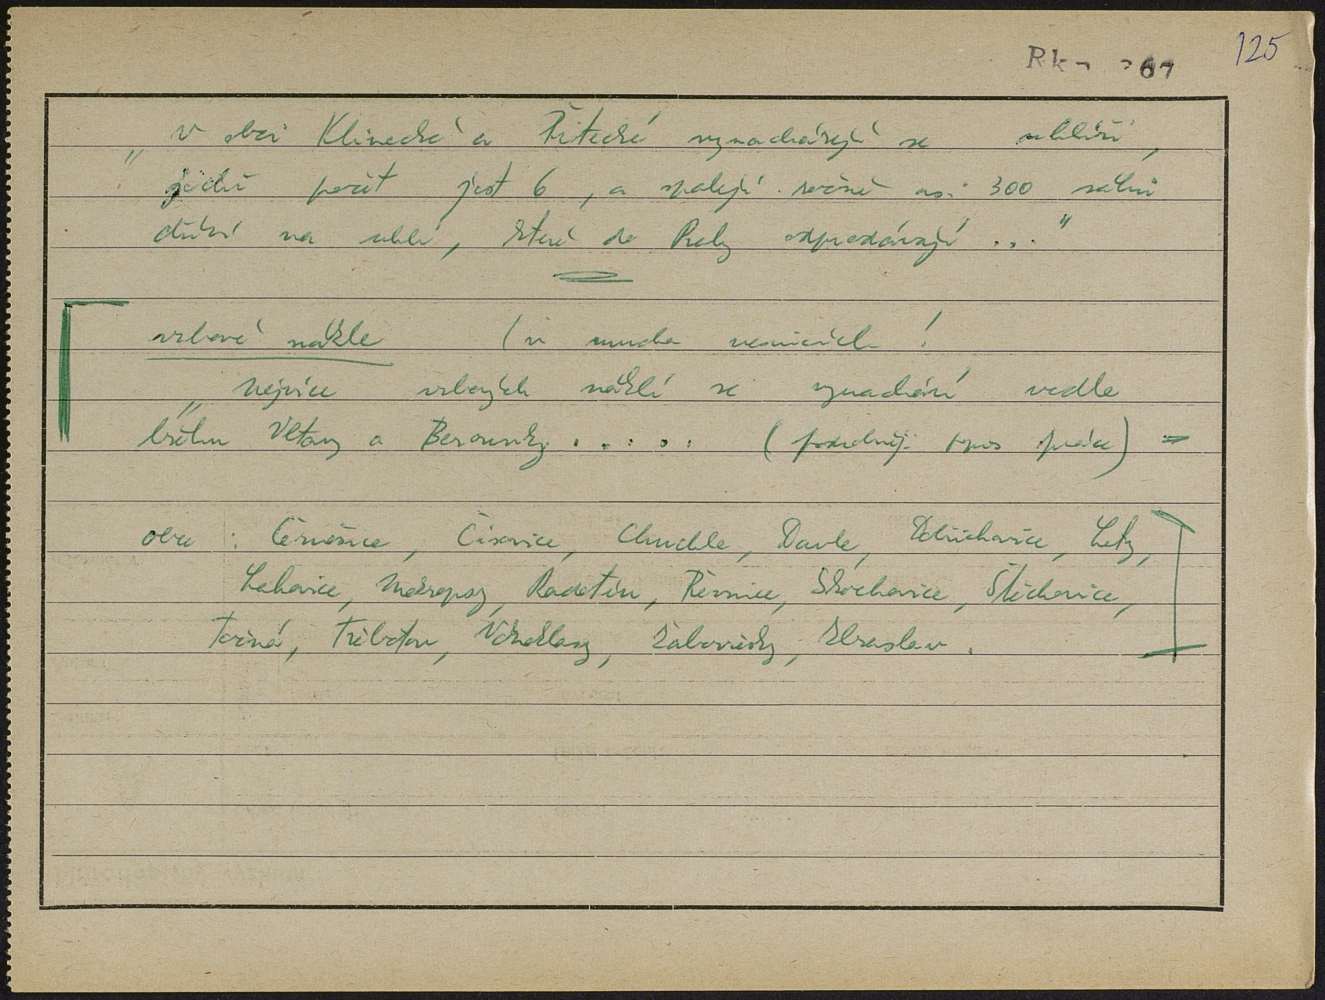 125
Rk 267
„v obci Klínecké a Řitecké vynacházejí se uhlíři,
jichž počet jest 6, a spalují ročně asi 300 sáhů
dříví na uhlí, které do Prahy odprodávají ..."
vrbové náklé (v mnoha vesnicích!
„Nejvíce vrbových náklí se vynachází vedle
břehu Vltavy a Berounky ..... (podrobněji spis práce) =
obce: Černošice, Čisovice, Chuchle, Davle, Dobřichovice, Lety,
Lahovice, Mokropsy, Radotín, Řevnice, Skochovice, Štěchovice,
Točná, Třebotov, Všenory, Záběhlice, Zbraslav.